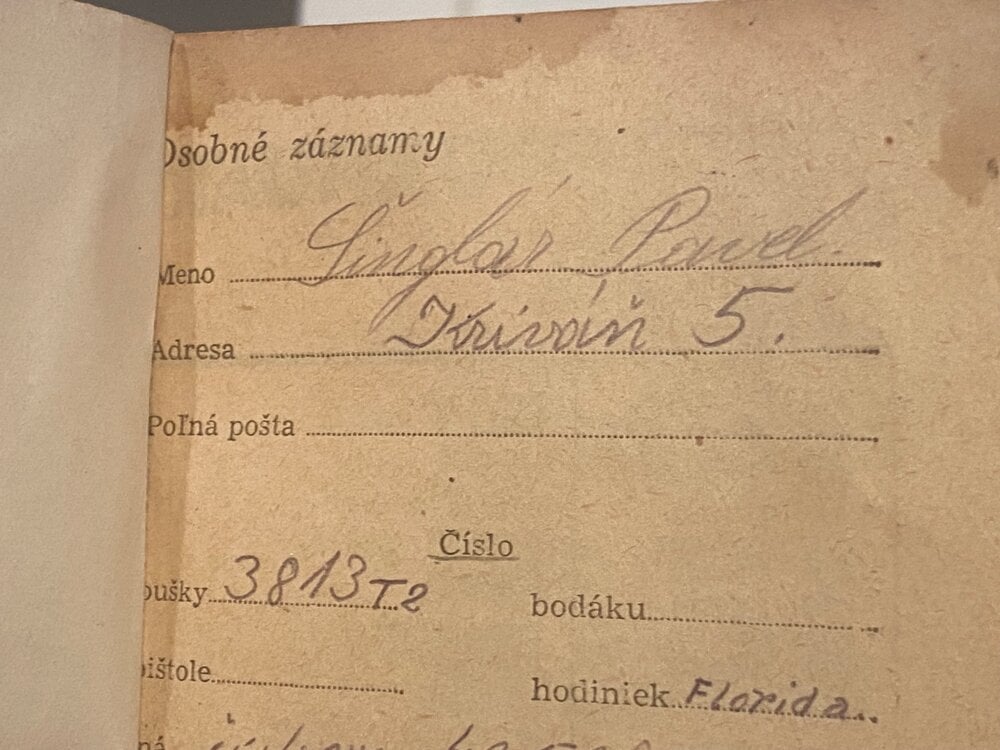 Osobné záznamy
Meno Šinglár Pavel.
Adresa Kriváň 5.
Poľná pošta
Číslo
pušky 3813T2 bodáku
pištole hodiniek Florida